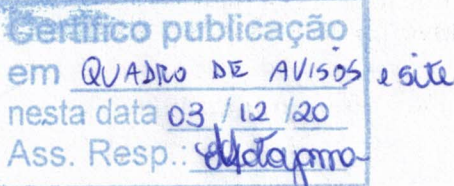 Certifico publicação
em QUADRO DE AVISOS e site
nesta data 03 / 12 / 20
Ass. Resp.: